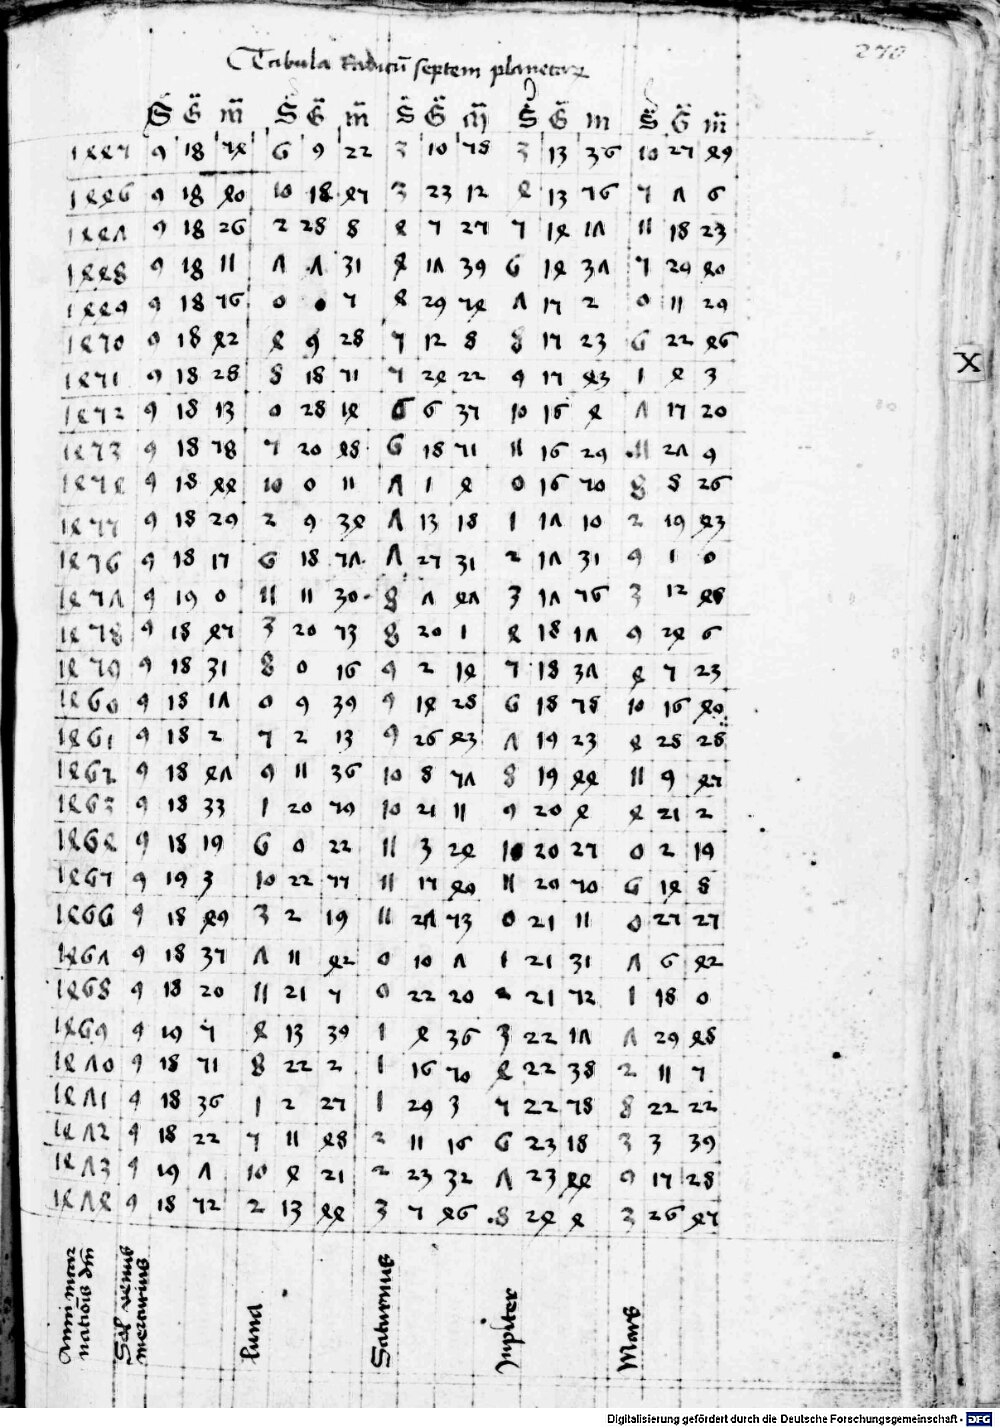 270
Tabula Radicū septem planetarꝫ
S̈ G̈ m̈ S̈ G̈ m̈ S̈ G̈ m̈ S̈ G̈ m S̈ G̈ m̈
1445 9 18 54 6 9 22 3 10 58 3 13 36 10 25 49
1446 9 18 40 10 18 45 3 23 12 4 13 56 5 7 6
1447 9 18 26 2 28 8 4 5 25 5 14 17 11 18 23
1448 9 18 11 7 7 31 4 17 39 6 14 37 5 29 40
1449 9 18 56 0 0 5 4 29 54 7 15 2 0 11 29
1450 9 18 42 4 9 28 5 12 8 8 15 23 6 22 46
1451 9 18 28 8 18 51 5 24 22 9 15 43 1 4 3
1452 9 18 13 0 28 14 6 6 35 10 16 4 7 15 20
1453 9 18 58 5 20 48 6 18 51 11 16 29 11 27 9
1454 9 18 44 10 0 11 7 1 4 0 16 50 8 8 26
1455 9 18 29 2 9 34 7 13 18 1 17 10 2 19 43
1456 9 18 15 6 18 57 7 25 31 2 17 31 9 1 0
1457 9 19 0 11 11 30 8 7 47 3 17 56 3 12 48
1458 9 18 45 3 20 53 8 20 1 4 18 17 9 24 6
1459 9 18 31 8 0 16 9 2 14 5 18 37 4 5 23
1460 9 18 17 0 9 39 9 14 28 6 18 58 10 16 40
1461 9 18 2 5 2 13 9 26 43 7 19 23 4 28 28
1462 9 18 47 9 11 36 10 8 57 8 19 44 11 9 45
1463 9 18 33 1 20 59 10 21 11 9 20 4 4 21 2
1464 9 18 19 6 0 22 11 3 24 10 20 25 0 2 19
1465 9 19 3 10 22 55 11 15 40 11 20 50 6 14 8
1466 9 18 49 3 2 19 11 27 53 0 21 11 0 25 25
1467 9 18 35 7 11 42 0 10 7 1 21 31 7 6 42
1468 9 18 20 11 21 5 0 22 20 2 21 52 1 18 0
1469 9 19 5 4 13 39 1 4 36 3 22 17 7 29 48
1470 9 18 51 8 22 2 1 16 50 4 22 38 2 11 5
1471 9 18 36 1 2 25 1 29 3 5 22 58 8 22 22
1472 9 18 22 5 11 48 2 11 16 6 23 18 3 3 39
1473 9 19 7 10 4 21 2 23 32 7 23 44 9 15 28
1474 9 18 52 2 13 44 3 5 46 8 24 4 3 26 45
Anni incar
natiōis dm̄
Sol venus
mercurius
luna
Saturnus
Jupiter
Mars
X
Digitalisierung gefördert durch die Deutsche Forschungsgemeinschaft - DFG